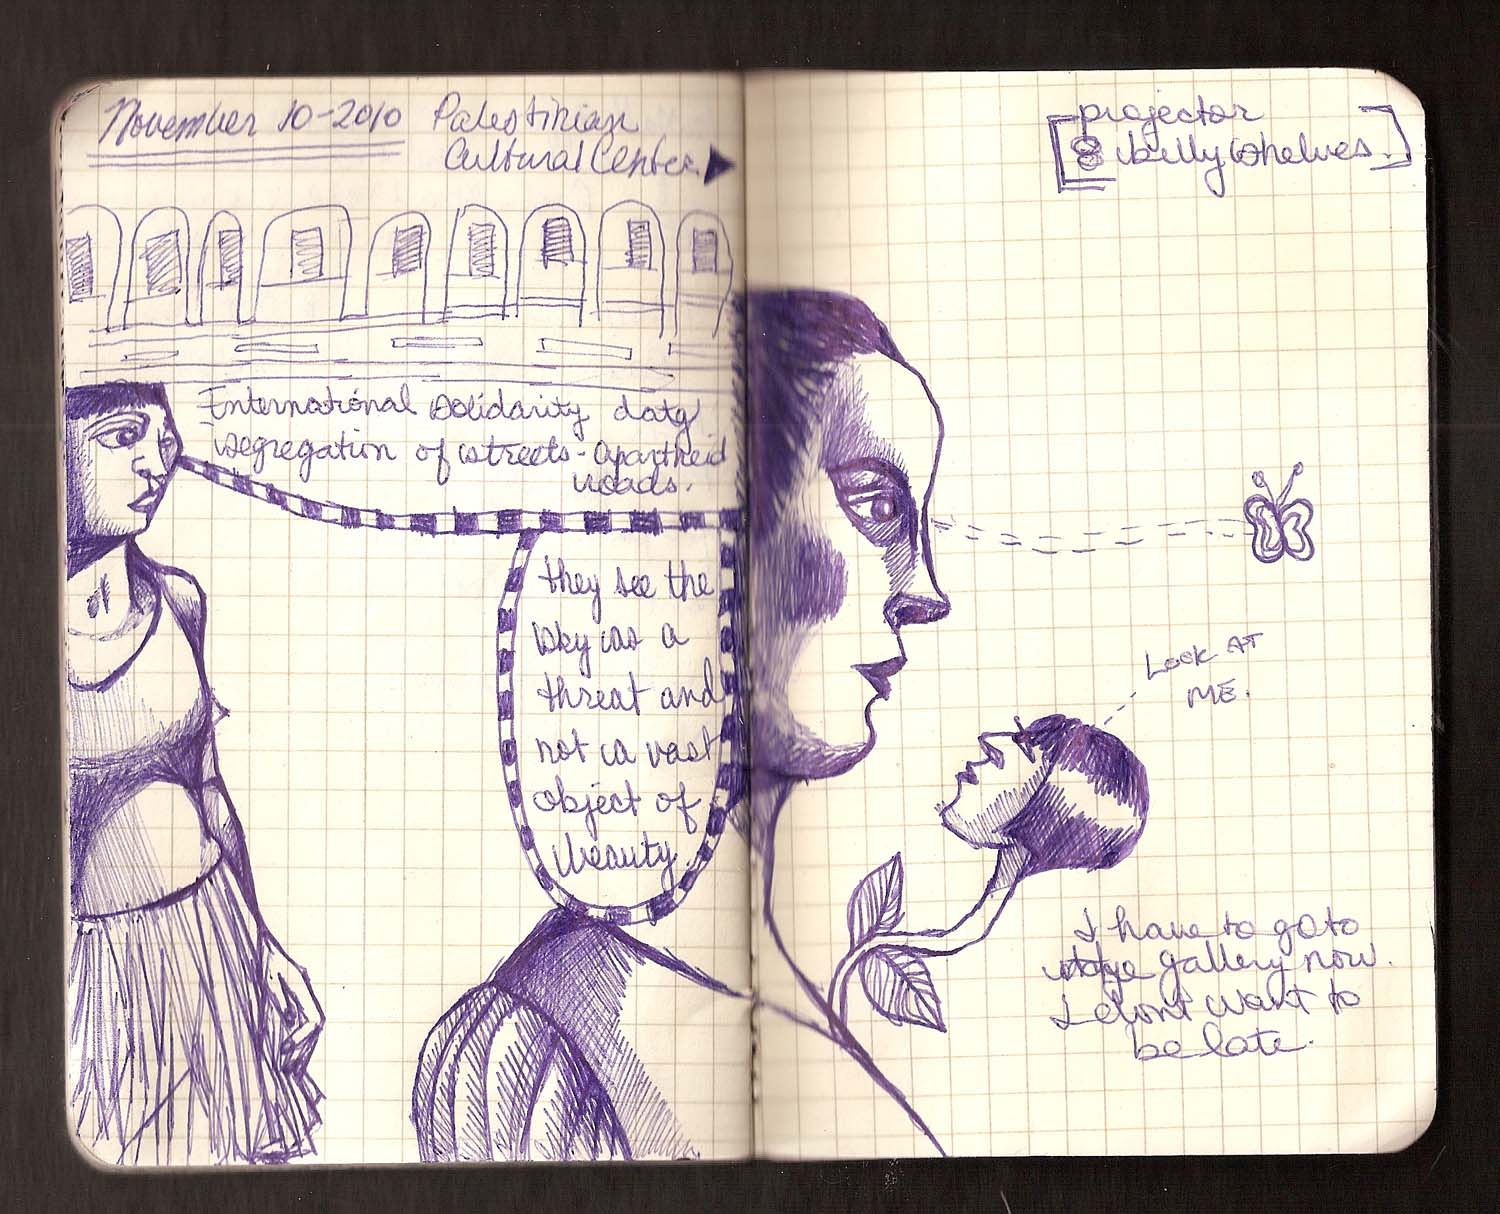 November 10-2010
Palestinian
Cultural Center.
International solidarity
segregation of streets - apartheid
roads.
they see the
sky as a
threat and
not a vast
object of
beauty.
projector
8 billy shelves.
LOOK AT
ME.
I have to go to
gallery now.
I dont want to
be late.